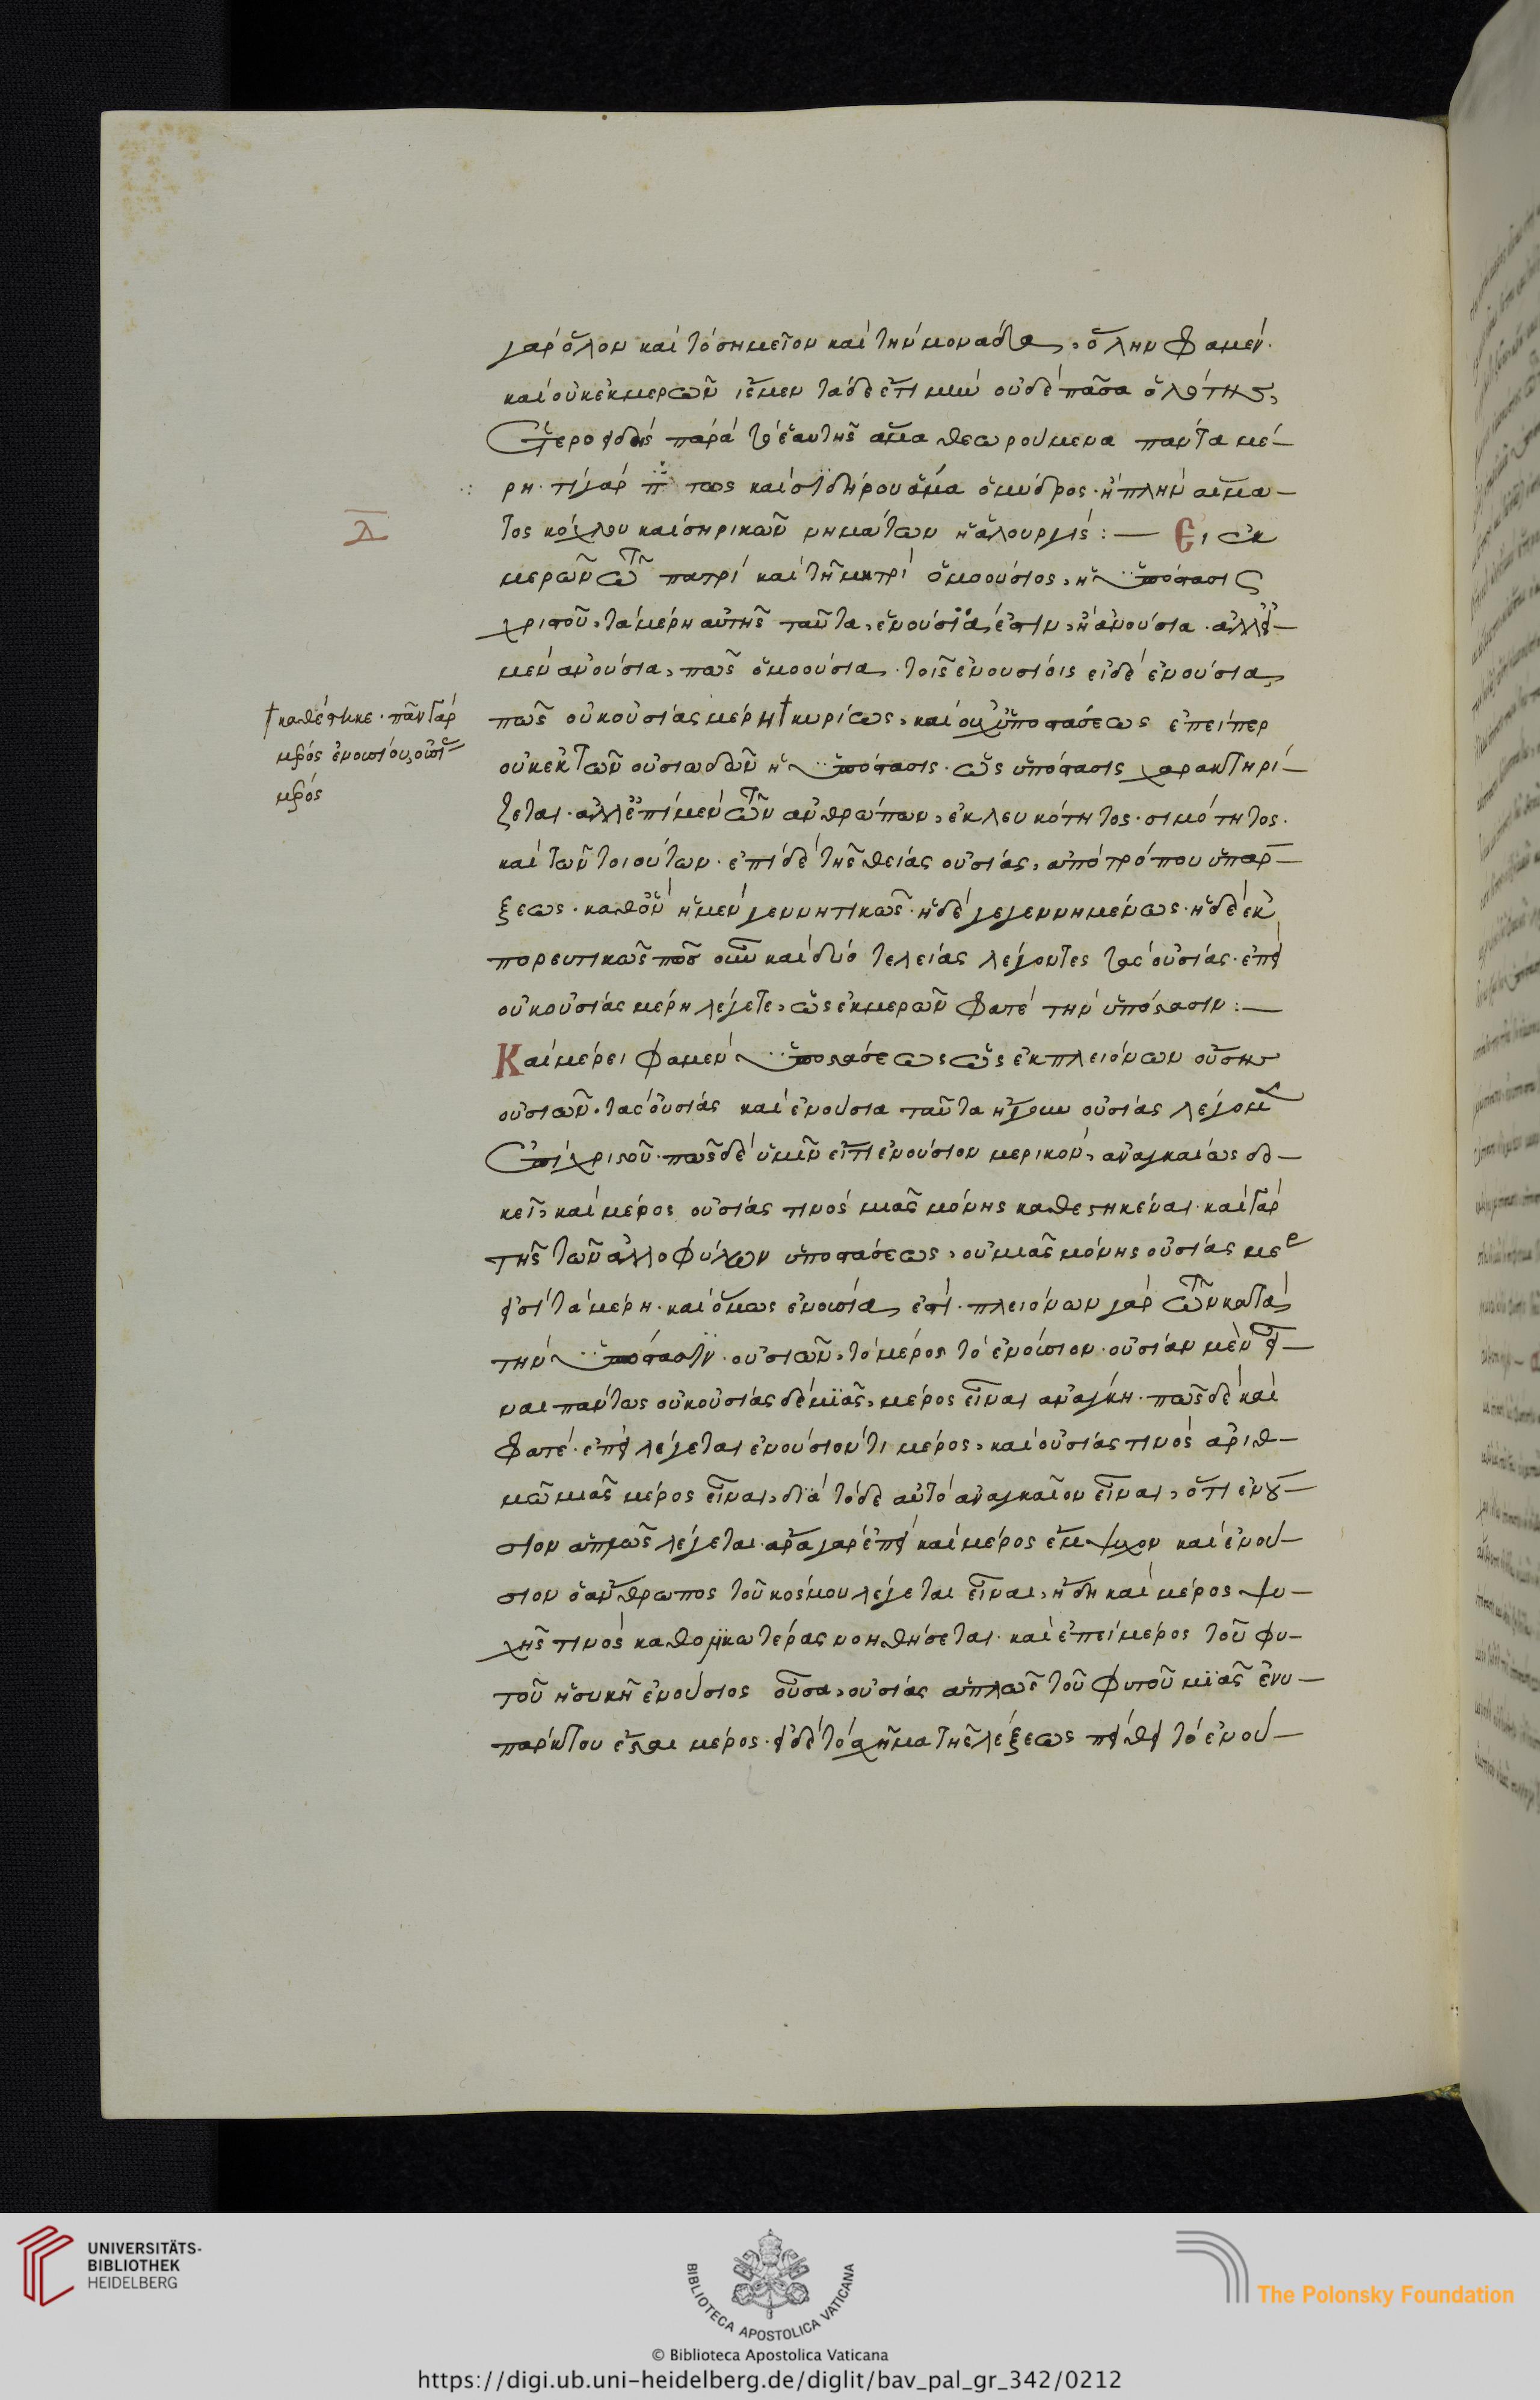 γὰρ ὅλον καὶ τὸ σημεῖον καὶ τὴν μονάδα, ὅλην φαμέν·
καὶ οὐκ ἐκ μερῶν ἴσμεν τάδε ἔτι μὴν οὐδὲ πᾶσα ὁλότης,
ἑτεροειδὴς παρὰ τὰ ἑαυτῆς ἅμα θεωρούμενα πάντα μέ-
ρη· τί γὰρ καὶ σιδήρου ἅμα ὁ μύδρος· ἢ πλὴν αἵμα-
λ
τος κόχλου καὶ σηρικῶν νημάτων ἡ ἁλουργίς :— Εἰ ἐκ
μερῶν τῶν πατρὶ καὶ τῇ μητρὶ ὁμοούσιος, ἡ ὑπόστασις
χριστοῦ, τὰ μέρη αὐτῆς ταῦτα, ἐνούσιά ἐστιν, ἢ ἀνούσια· ἀλλ' εἰ
μὲν ἀνούσια, πῶς ὁμοούσια τοῖς ἐνουσίοις εἰ δὲ ἐνούσια,
πῶς οὐκ οὐσίας μέρη † κυρίως, καὶ οὐχ ὑποστάσεως ἐπείπερ
† καθέστηκε· πᾶν γὰρ
μέρος ἐνουσίου, οὐσί
μέρος
οὐκ ἐκ τῶν οὐσιωδῶν ἡ ὑπόστασις· ὡς ὑπόστασις χαρακτηρί-
ζεται· ἀλλ' ἐπὶ μὲν τῶν ἀνθρώπων, ἐκ λευκότητος· σιμότητος·
καὶ τῶν τοιούτων· ἐπὶ δὲ τῆς θείας οὐσίας, ἀπὸ τρόπου ὑπάρ-
ξεως· καθ' ὃν ἡ μὲν γεννητικῶς· ἡ δὲ γεγεννημένως· ἡ δὲ ἐκ
πορευτικῶς πῶς οὖν καὶ δύο τελείας λέγοντες τὰς οὐσίας· ἐπεὶ
οὐκ οὐσίας μέρη λέγετε, ὡς ἐκ μερῶν φατὲ τὴν ὑπόστασιν :—
Καὶ μέρει φαμὲν ὑποστάσεως ὡς ἐκ πλειόνων οὔσης
οὐσιῶν· τὰς οὐσίας καὶ ἐνούσια ταῦτα ἤγουν οὐσίας λέγομεν
ἐπὶ χριστοῦ· πῶς δὲ ὑμῖν εἴ τι ἐνούσιον μερικόν, ἀναγκαίως δο-
κεῖ, καὶ μέρος οὐσίας τινὸς μιᾶς μόνης καθεστηκέναι· καὶ γὰρ
τῆς τῶν ἀλλοφύλων ὑποστάσεως, οὐ μιᾶς μόνης οὐσίας μέ
εἰσὶ τὰ μέρη· καὶ ὅμως ἐνούσια, ἐστί· πλειόνων γὰρ τῶν κατὰ
τὴν ὑπόστασιν· οὐσιῶν, τὸ μέρος τὸ ἐνούσιον· οὐσίαν μὲν εἶ-
ναι πάντως οὐκ οὐσίας δὲ μιᾶς, μέρος εἶναι ἀνάγκη· πῶς δὲ καὶ
φατέ· ἐπεὶ λέγεται ἐνούσιόν τι μέρος, καὶ οὐσίας τινὸς ἀριθ-
μῷ μιᾶς μέρος εἶναι, διὰ τόδε αὐτὸ ἀναγκαῖον εἶναι, ὅτι ἐνού-
σιον ἁπλῶς λέγεται· ἆρα γὰρ ἐπεὶ καὶ μέρος ἔμψυχον καὶ ἐνού-
σιον ὁ ἄνθρωπος τοῦ κόσμου λέγεται εἶναι, ἤδη καὶ μέρος ψυ-
χῆς τινὸς καθολικωτέρας νοηθήσεται· καὶ ἐπεὶ μέρος τοῦ φυ-
τοῦ ἡ συκῆ ἐνούσιος οὖσα, οὐσίας ἁπλῶς τοῦ φυτοῦ μιᾶς ἐνυ-
πάρκτου ἔσται μέρος· εἰ δὲ τὸ σχῆμα τῆς λέξεως πείθει τὸ ἐνού-
UNIVERSITÄTS-
BIBLIOTHEK
HEIDELBERG
BIBLIOTECA APOSTOLICA VATICANA
The Polonsky Foundation
© Biblioteca Apostolica Vaticana
https://digi.ub.uni-heidelberg.de/diglit/bav_pal_gr_342/0212